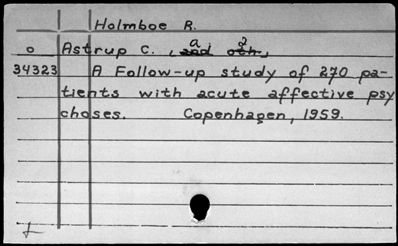 Holmboe R.
o Astrup C., a and 2 oth.,
34323 A Follow-up study of 270 pa-
tients with acute affective psy
choses. Copenhagen, 1959.